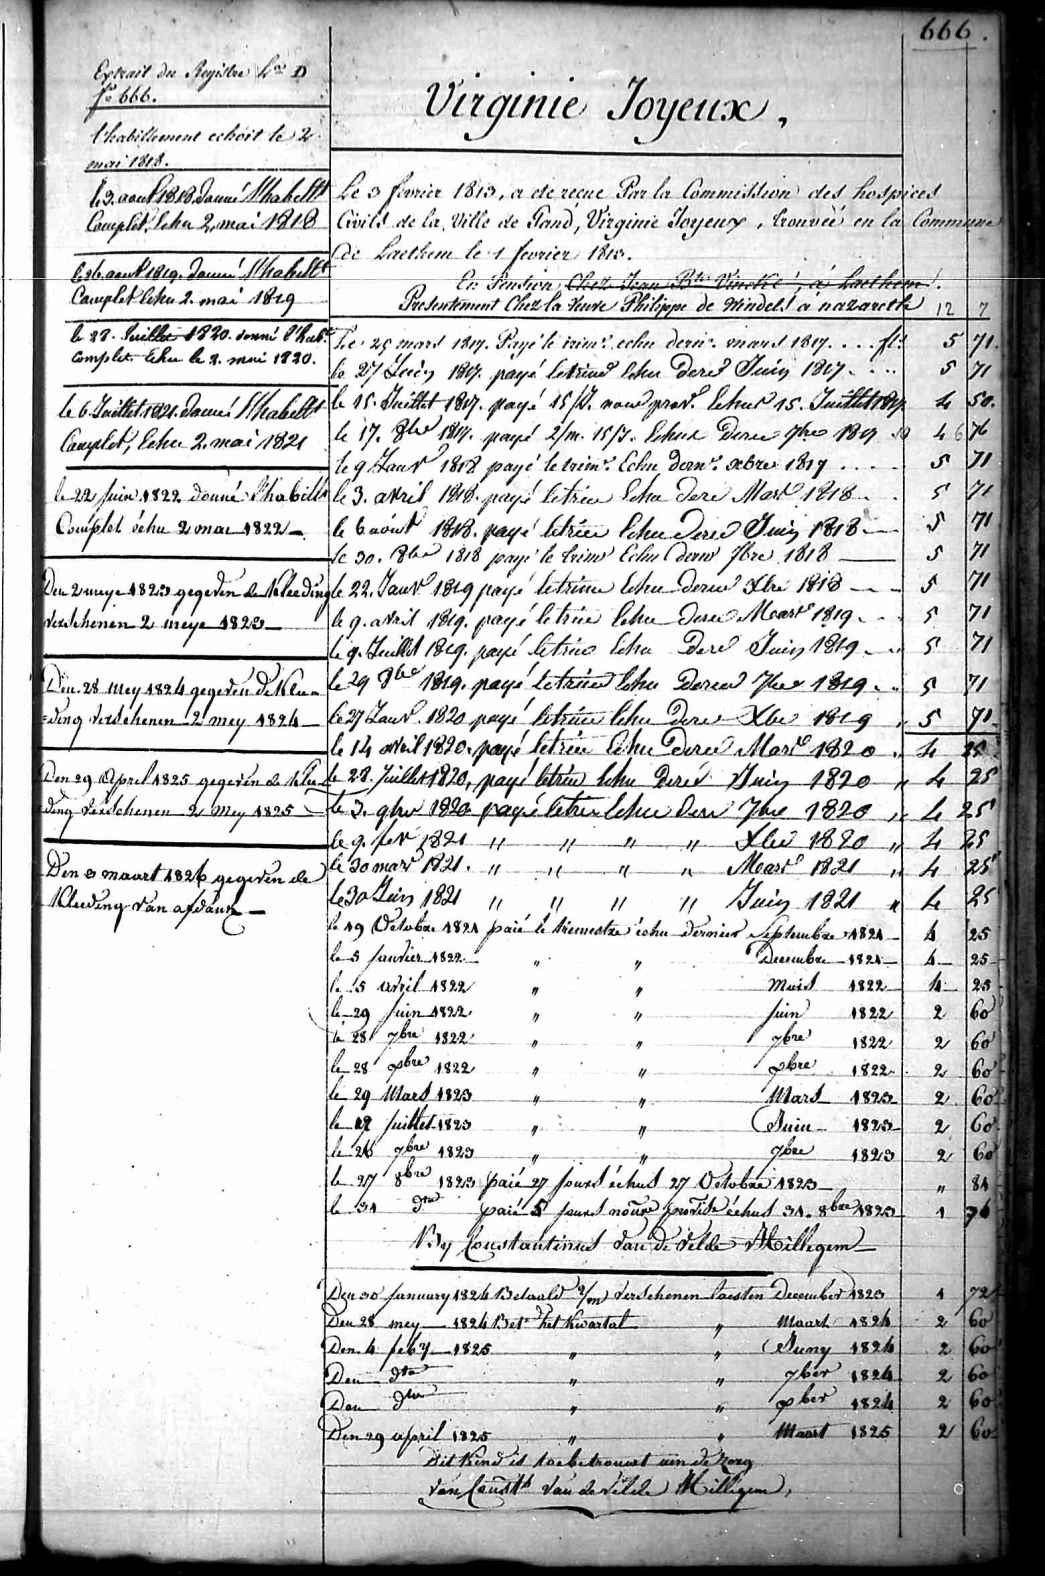 666.
Extrait du Registre L.re D
f.o 666.
l'habillement echoit le 2
mai 1818.
le 3. aout 1818 donné l'habill.t
Complet, Echu 2, mai 1818
le 26 aout 1819. donné l'habill.t
Complet Echu 2. mai 1819
le 28. Juillet 1820. donné l'hab.t
Complet Echu le 2. mai 1820.
le 6 Juillet 1821. Donné l'habill.t
Complet, Echu 2. mai 1821
le 22 Juin 1822 donné l'habill.t
Complet échu 2 mai 1822
Den 2 meye 1823 gegeven de Kleeding
verschenen 2 meye 1823
Den 28 mey 1824 gegeven de Klee=
=ding verschenen 2 mey 1824
Den 29 April 1825 gegeven de Klee
ding verschenen 2 Mey 1825
Den 3 maart 1826 gegeven de
Kleeding van
Virginie Joyeux,
Le 3 fevrier 1813, a ete reçue Par la Commission des hospices
Civils de la Ville de Gand, Virginie Joyeux, trouvée en la Commune
de Laethem le 1 fevrier 1813.
En Pension Chez Jean Bte Vinckié, à Laethem.
Presentement Chez la Veuve Philippe de Windels à nazareth 12 7
Le 25 mars 1817. Payé le trim.e echu dern.r mars 1817. . . . fl.s 5 71.
le 27 Juin 1817. payé le trim.e Echu der.r Juin 1817. . . . 5 71
le 15. Juillet 1817. payé 15/J. nour prov. Echus 15. Juillet 1817 4 50.
le 17. 8bre 1817. payé 2/m. 15/J. Echus Dern 7bre 1817 4 6 76
le 9 Janv.r 1818 payé le trim.e Echu dern.r xbre 1817 . . . . 5 71
le 3. avril 1818. payé le trim Echu der.r Mars 1818 5 71
le 6 aout 1818. payé le trim Echu der.r Juin 1818 5 71
le 30. 8bre 1818 payé le trim.e Echu dern.r 7bre 1818 5 71
le 22. Janv.r 1819 payé le trim Echu dern Xbre 1818 5 71
le 9. avril 1819. payé le trim Echu Der.r Mars 1819 5 71
le 9. Juillet 1819. payé le trim Echu Der.r Juin 1819 5 71
le 29 8bre 1819. payé le trim Echu Dern 7bre 1819 5 71
le 27 Janv. 1820 payé le trim Echu der.r Xbre 1819 " 5 71
le 14 avril 1820. payé le trim Echu Der.r Mars 1820 " 4 25
le 28. Juillet 1820, payé le trim Echu Der.r Juin 1820 " 4 25
le 3. 9bre 1820 payé le trim Echu der.r 7bre 1820 " 4 25
le 9. fev.r 1821 " " " " Xbre 1820 " 4 25
le 30 mars 1821. " " " " Mars 1821 " 4 25
le 30 Juin 1821 " " " " Juin 1821 " 4 25
le 19 Octobre 1821 paié le trimestre échu dernier Septembre 1821 4 25
le 5 janvier 1822 " " Decembre 1821 4 25
le 5 avril 1822 " " Mars 1822 4 25
le 29 juin 1822 " " juin 1822 2 60
le 28 7bre 1822 " " 7bre 1822 2 60
le 28 xbre 1822 " " xbre 1822 2 60
le 29 Mars 1823 " " Mars 1823 2 60
le juillet 1823 " " Juin 1823 2 60
le 26 7bre 1823 " " 7bre 1823 2 60
le 27 8bre 1823 paié 27 jours échus 27 Octobre 1823 " 84
le 31 dto paié 5 jours échus 31. 8bre 1823 1
By Constantinus Van de Velde Millegem
Den 30 January 1824 Betaald 2/m verschenen laesten December 1823 1 72
Den 28 mey 1824 Bet.d het Kwartal " Maart 1824 2 60
Den 4 feb.y 1825 " " Juny 1824 2 60
Den dto " " 7ber 1824 2 60
Den dto " " xber 1824 2 60
Den 29 april 1825 " " Maart 1825 2 60
Dit Kind is toebetrouwt aan de zorg
van Const. Van de Velde Milligem,